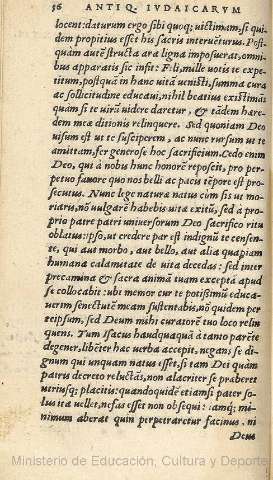 36 ANTIQ. IVDAICARVM
locent: daturum ergo sibi quoq; uictimam, si qui-
dem propitius esset his sacris interuēturus. Post-
quàm autē structa ara ligna imposuerat, omni-
bus apparatis sic infit: Fili, mille uotis te expe-
titum, postquā in hanc uitā uenisti, summa cura
ac sollicitudine educaui, nihil beatius existimās
quàm si te uirū uidere daretur, & tādem hære-
dem meæ ditionis relinquere. sed quoniam Deo
uisum est ut te susciperem, ac nunc rursum ut te
amittam, fer generose hoc sacrificium. Cedo enim
Deo, qui à nobis hunc honorē reposcit, pro per-
petuo fauore quo nos belli ac pacis tēpore est pro-
secutus. Nunc lege naturæ natus cùm sis ut mo-
riaris, nō uulgarē habebis uitæ exitū, sed à pro-
prio patre patri uniuersorum Deo sacrifico ritu
oblatus: ipso, ut credere par est indignū te censen-
te, qui aut morbo, aut bello, aut alia quapiam
humana calamitate de uita decedas: sed inter
precamina & sacra animā tuam exceptā apud
se collocabit: ubi memor cur te potissimū educa-
uerim senectutē meam sustentabis, nō quidem per
teipsum, sed Deum mihi curatorē tuo loco relin
quens. Tum Isacus haudquaquā à tanto parēte
degener, libēter hæc uerba accepit, negans se di-
gnum qui unquam natus esset, si tam Dei quàm
patris decreto reluctās, non alacriter se præberet
utriusq; placitis: quandoquidē etiamsi pater so-
lus ita uellet, nefas esset non obsequi: iamq; mi-
nimum aberat quin perpetraretur facinus, ni
Deus
Ministerio de Educación, Cultura y Deporte